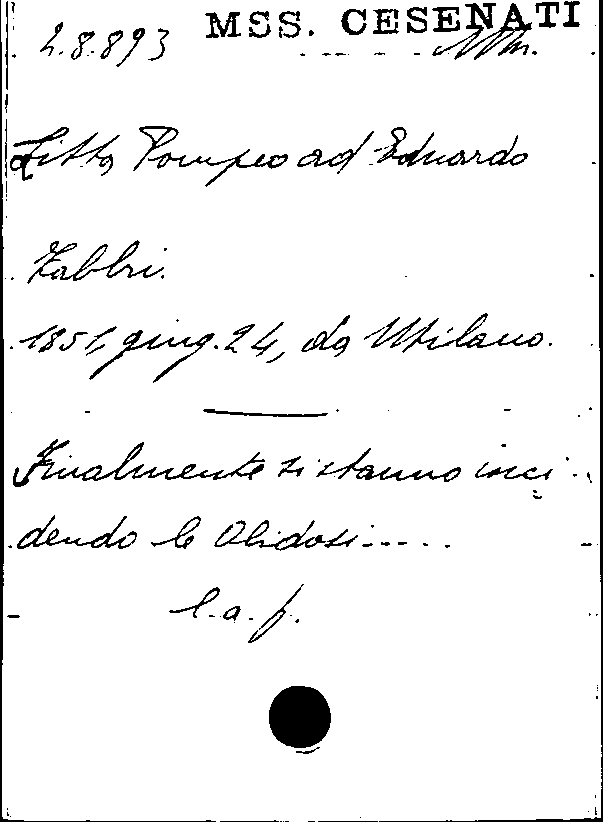 MSS. CESENATI
2.8.893
Litta Pompeo ad Eduardo
Fabbri.
1851, giug. 24, da Milano.
Finalmente si stanno inci
dendo le Alidosi.....
l.a.f.